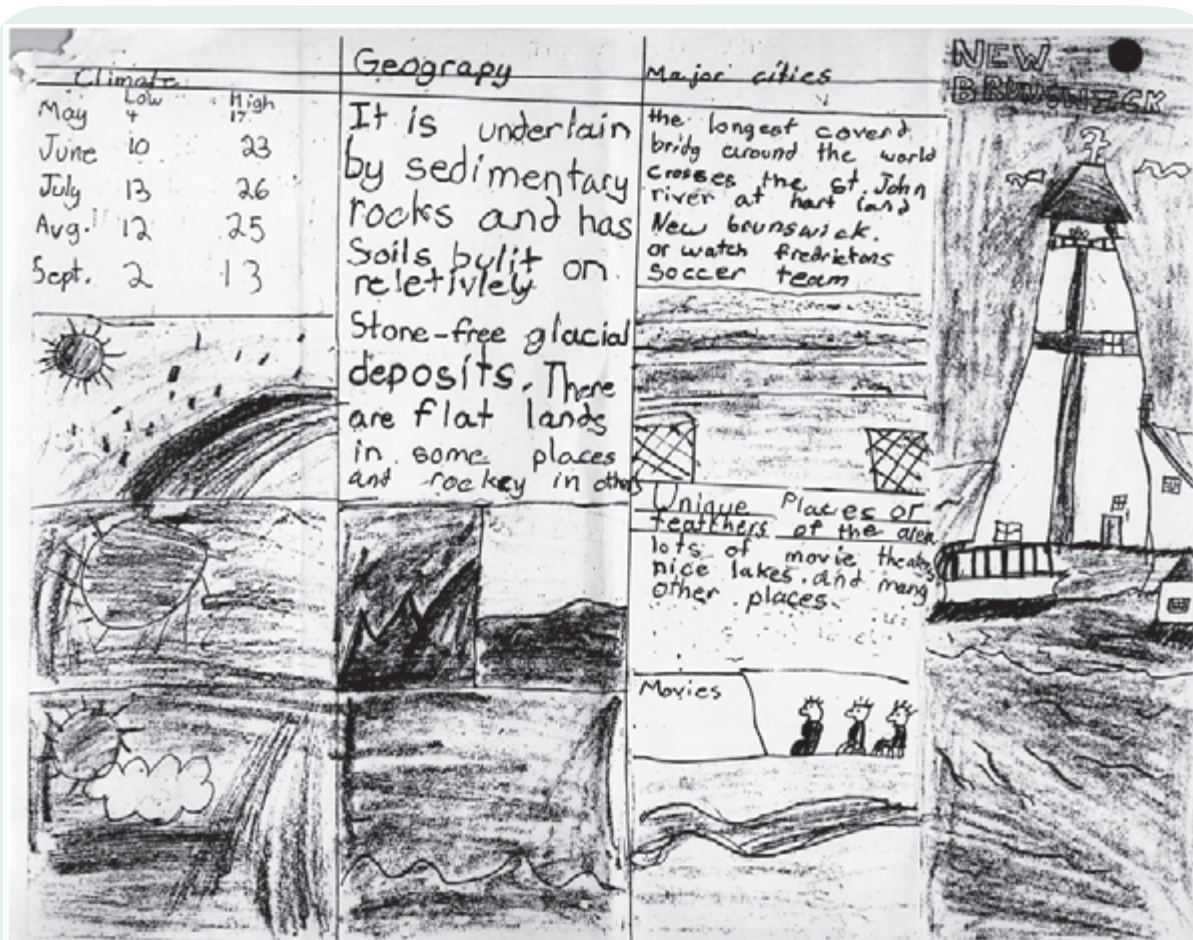 Climate
Low High
May 4 17
June 10 23
July 13 26
Aug. 12 25
Sept. 2 13
Geograpy
It is underlain
by sedimentary
rocks and has
Soils bulit on
reletivlely
Stone-free glacial
deposits. There
are flat lands
in some places
and rockey in others
Major cities
the longest coverd
bridg around the world
crosses the st. John
river at hart land
New brunswick.
or watch fredrictons
soccer team
Unique Places or
featchers of the area
lots of movie theaters
nice lakes. and many
other places.
Movies
NEW
BRUNSWICK